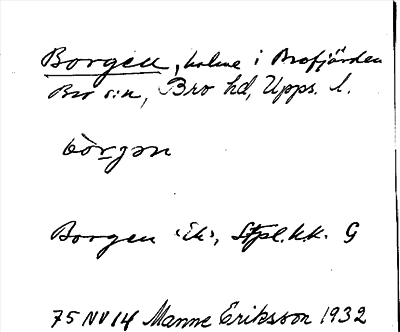 Borgen, holme i Brofjärden
Bro s:n, Bro hd, Upps. l.
bòrgən
Borgen ‹Ek›, Stpl.h.k. G
75 NV 14 Manne Eriksson 1932